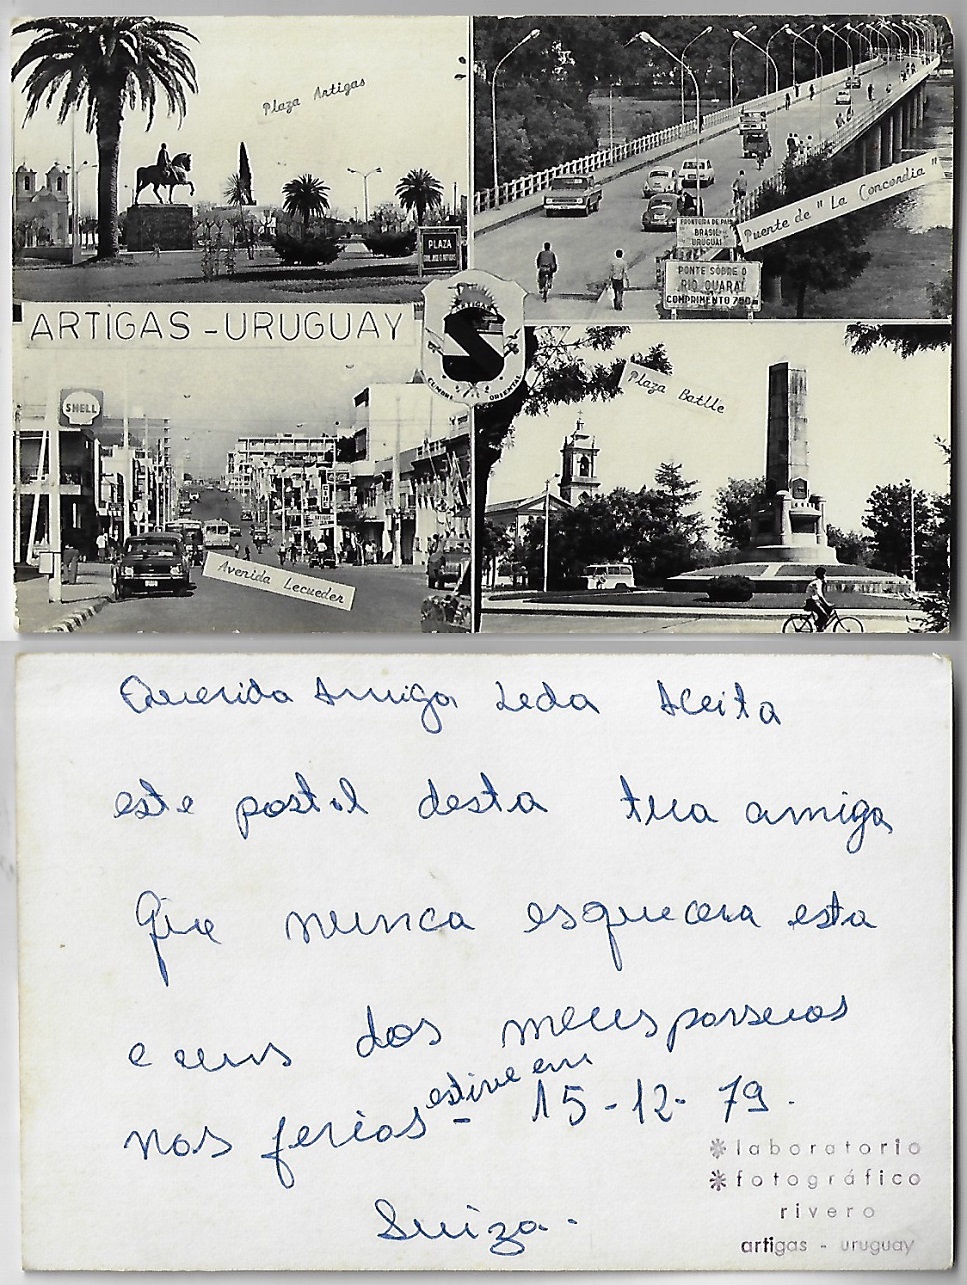 Plaza Artigas
PLAZA
Puente de "La Concordia"
FRONTEIRA DE PAIS
BRASIL
URUGUAI
PONTE SÔBRE O
RIO QUARAÍ
COMPRIMENTO 750 m
ARTIGAS - URUGUAY
SHELL
Avenida Lecueder
Plaza Batlle
Querida Amiga Leda Aceita
este postal desta tua amiga
Que nunca esquecera esta
e um dos meus passeios
nas ferias - estive em 15-12-79.
Suiza.
laboratorio
fotográfico
rivero
artigas - uruguay